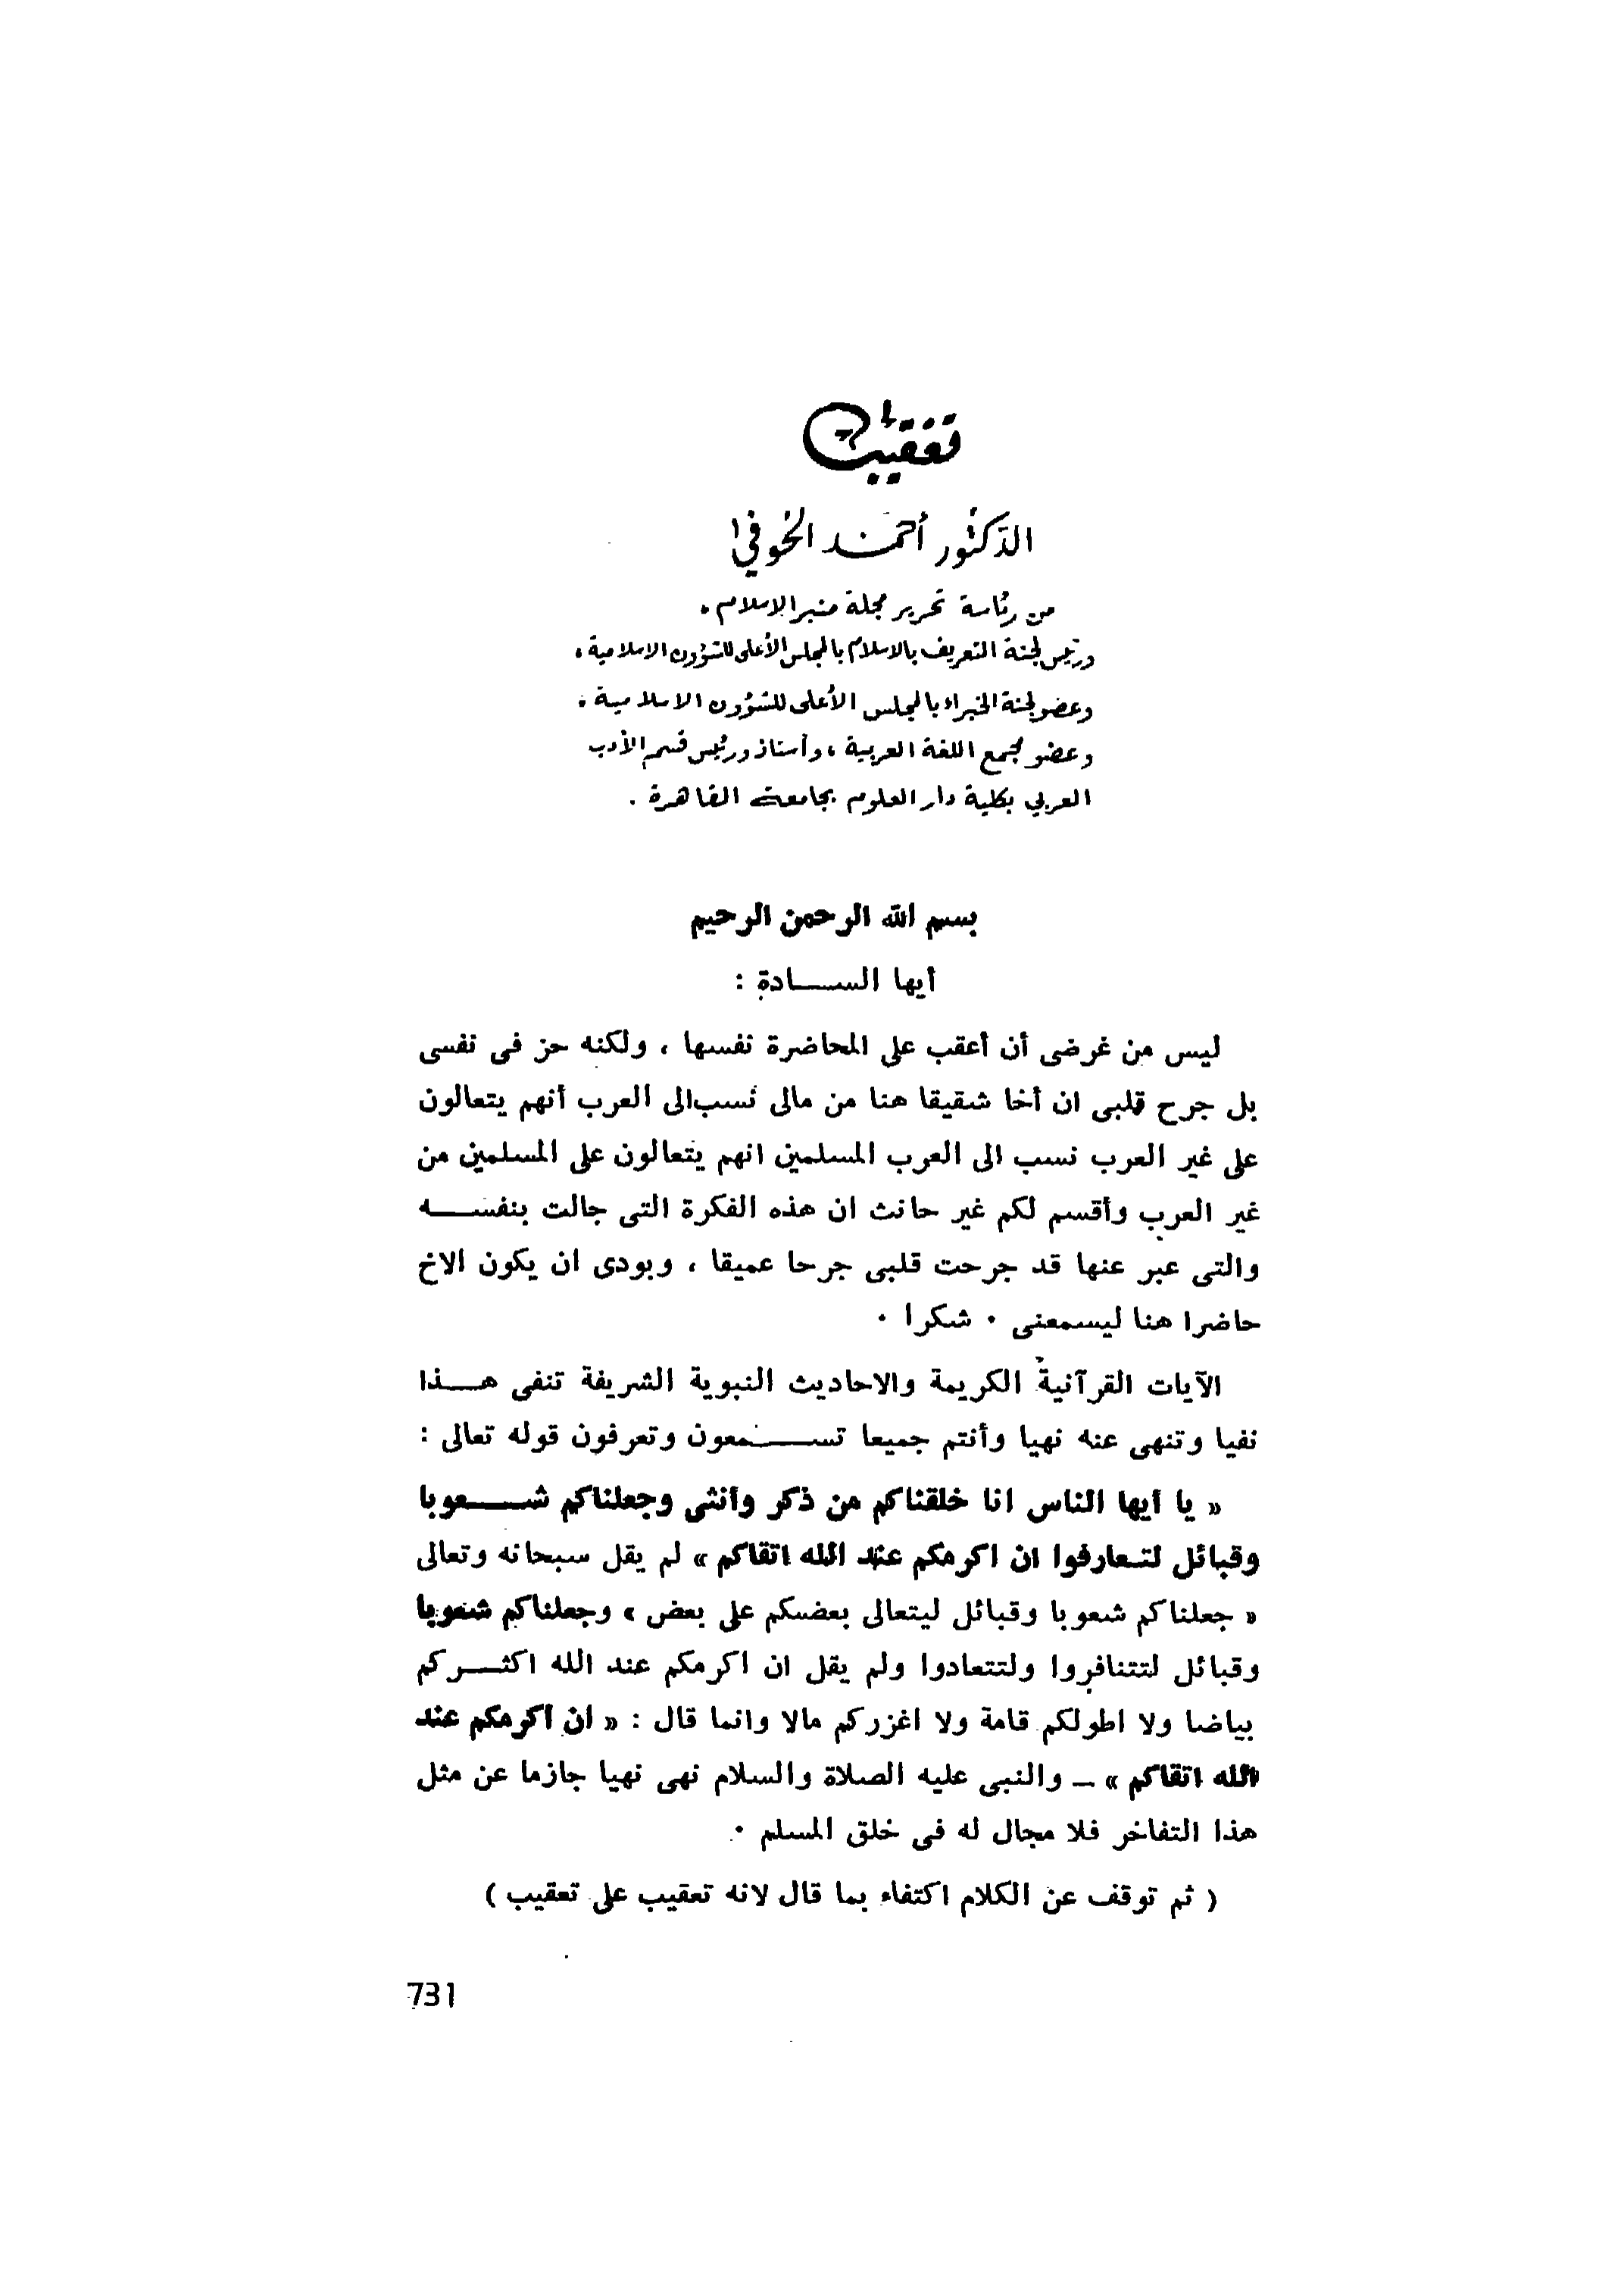 تعقيب
الدكتور أحمد الحوفي
من رئاسة تحرير مجلة منبر الاسلام ،
ورئيس لجنة التعريف بالاسلام بالمجلس الأعلى للشؤون الاسلامية ،
وعضو لجنة الخبراء بالمجلس الأعلى للشؤون الاسلامية .
وعضو مجمع اللغة العربية ، وأستاذ ورئيس قسم الأدب
العربي بكلية دار العلوم بجامعة القاهرة .
بسم الله الرحمن الرحيم
أيها الســـادة :
ليس من غرضى أن أعقب على المحاضرة نفسها ، ولكنه حز فى نفسى
بل جرح قلبى ان أخا شقيقا هنا من مالى نسب الى العرب أنهم يتعالون
على غير العرب نسب الى العرب المسلمين انهم يتعالون على المسلمين من
غير العرب وأقسم لكم غير حانث ان هذه الفكرة التى جالت بنفســـه
والتى عبر عنها قد جرحت قلبى جرحا عميقا ، وبودى ان يكون الاخ
حاضرا هنا ليسمعنى ٠ شكرا ٠
الآيات القرآنية الكريمة والاحاديث النبوية الشريفة تنفى هـــذا
نفيا وتنهى عنه نهيا وأنتم جميعا تســـمعون وتعرفون قوله تعالى :
« يا أيها الناس انا خلقناكم من ذكر وأنثى وجعلناكم شـــعوبا
وقبائل لتـعارفوا ان اكرمكم عند الله اتقاكم » لم يقل سبحانه وتعالى
« جعلناكم شعوبا وقبائل ليتعالى بعضكم على بعض » وجعلناكم شعوبا
وقبائل لتتنافروا ولتتعادوا ولم يقل ان اكرمكم عند الله اكثـــركم
بياضا ولا اطولكم قامة ولا اغزركم مالا وانما قال : « ان أكرمكم عند
الله اتقاكم » ــ والنبى عليه الصلاة والسلام نهى نهيا جازما عن مثل
هذا التفاخر فلا مجال له فى خلق المسلم ٠
( ثم توقف عن الكلام اكتفاء بما قال لانه تعقيب على تعقيب )
731